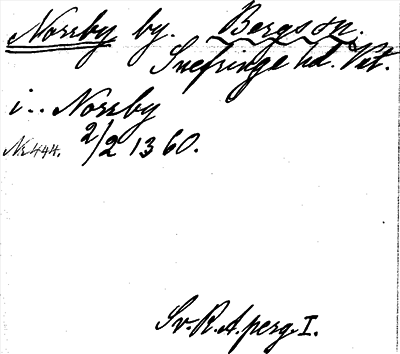 Norrby by. Bergs sn.
Snefringe hd. Vstm.
i.. Norrby
Nr 444. 2/2 1360.
Sv. R. A. perg. I.